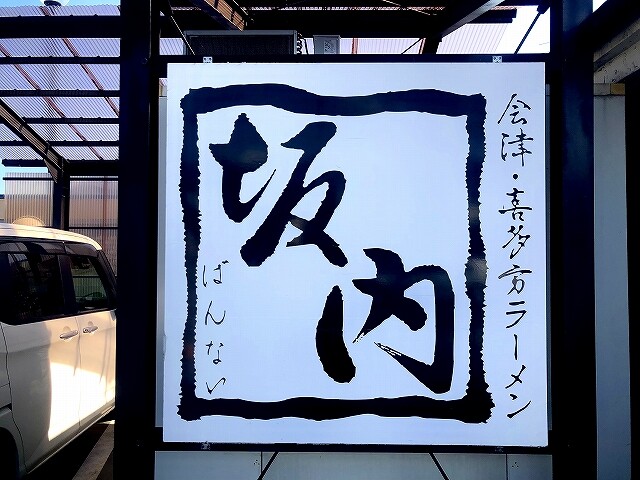 会津・喜多方ラーメン
坂内
ばんない